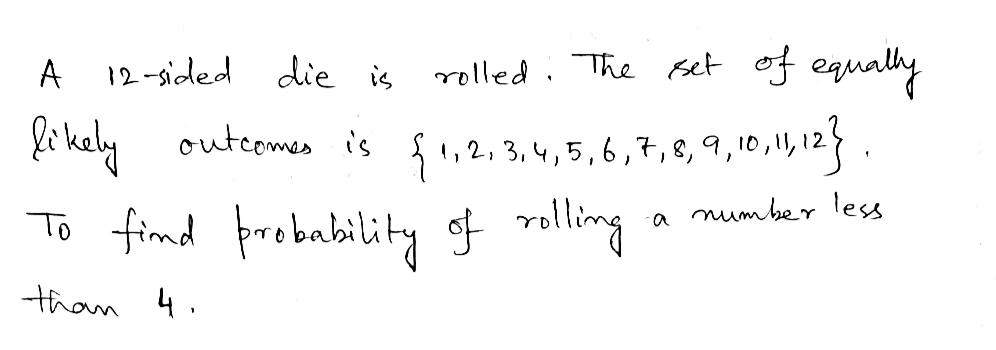 A 12-sided die is rolled. The set of equally
likely outcomes is {1,2,3,4,5,6,7,8,9,10,11,12}.
To find probability of rolling a number less
than 4.